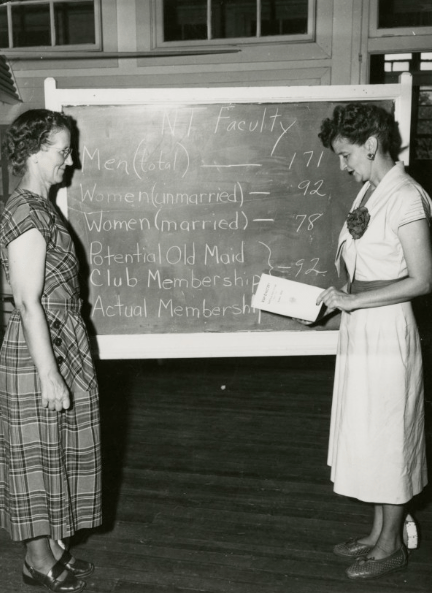 N.T. Faculty
Men (total) — 171
Women (unmarried) — 92
Women (married) — 78
Potential Old Maid
Club Membership } — 92
Actual Membership